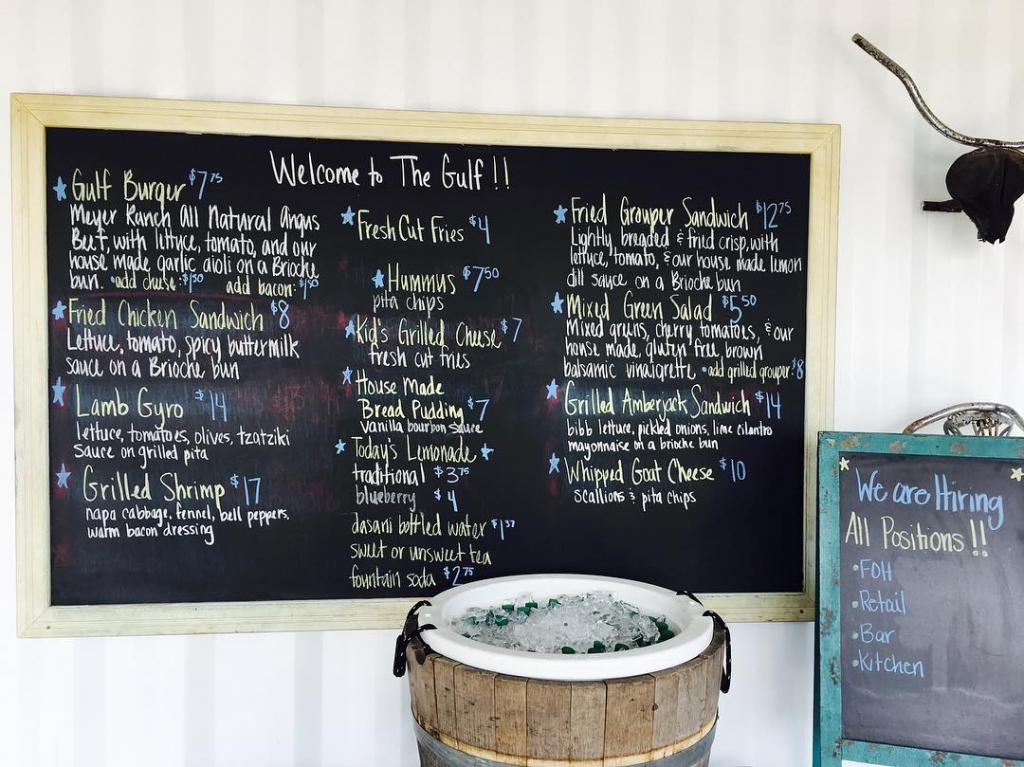 Welcome to The Gulf!!
Gulf Burger $7.75
Meyer Ranch All Natural Angus
Beef, with lettuce, tomato, and our
house made garlic aioli on a Brioche
bun. •add cheese: $1.50 add bacon: $1.50
Fried Chicken Sandwich $8
Lettuce, tomato, spicy buttermilk
sauce on a Brioche bun
Lamb Gyro $14
lettuce, tomatoes, olives, tzatziki
sauce on grilled pita
Grilled Shrimp $17
napa cabbage, fennel, bell peppers,
warm bacon dressing
Fresh Cut Fries $4
Hummus $7.50
pita chips
Kid's Grilled Cheese $7
fresh cut fries
House Made
Bread Pudding $7
vanilla bourbon sauce
Today's Lemonade
traditional $3.75
blueberry $4
dasani bottled water
sweet or unsweet tea
fountain soda $2.75
Fried Grouper Sandwich $12.75
Lightly breaded & fried crisp, with
lettuce, tomato, & our house made lemon
dill sauce on a Brioche bun
Mixed Green Salad $5.50
Mixed greens, cherry tomatoes, & our
house made, gluten free, brown
balsamic vinaigrette •add grilled grouper: $8
Grilled Amberjack Sandwich $14
bibb lettuce, pickled onions, lime cilantro
mayonnaise on a brioche bun
Whipped Goat Cheese $10
scallions & pita chips
We are Hiring
All Positions!!
•FOH
•Retail
•Bar
•Kitchen